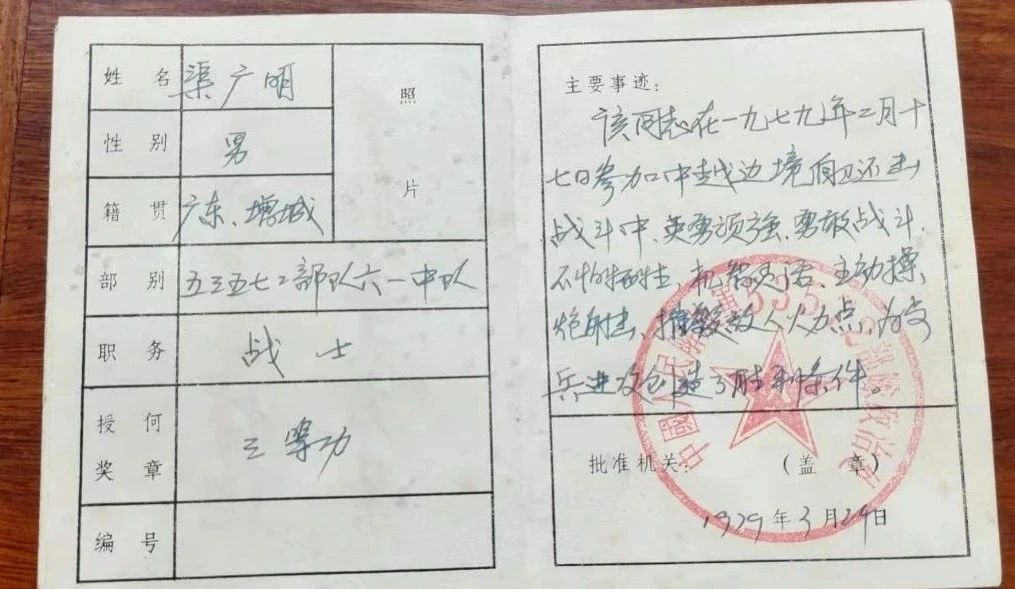 姓名 渠广明
照片
性别 男
籍贯 广东、增城
部别 五三五七二部队六一中队
职务 战士
授何奖章 三等功
编号
主要事迹:
该同志在一九七九年二月十
七日参加中越边境自卫还击
战斗中、英勇顽强、勇敢战斗、
不怕牺牲,机智灵活、主动操
炮射击,摧毁敌人火力点,为步
兵进攻创造了胜利条件。
批准机关: (盖章)
1979年3月29日